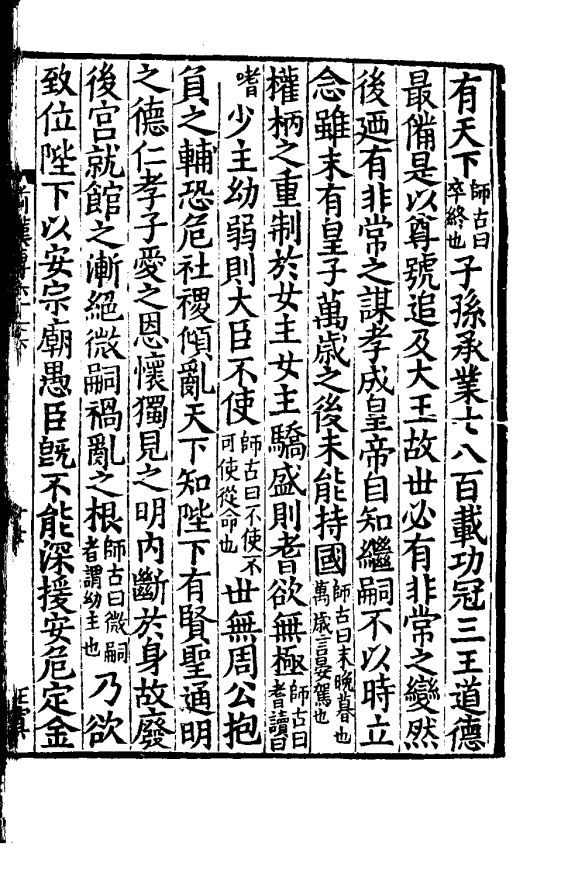 有天下師古曰卒終也子孫承業七八百載功冠三王道德
最備是以尊號追及大王故世必有非常之變然
後廼有非常之謀孝成皇帝自知繼嗣不以時立
念雖末有皇子萬歲之後未能持國師古曰末晚暮也萬歲言晏駕也
權柄之重制於女主女主驕盛則耆欲無極師古曰耆讀曰
嗜少主幼弱則大臣不使師古曰不使不可使從命也世無周公抱
負之輔恐危社稷傾亂天下知陛下有賢聖通明
之德仁孝子愛之恩懷獨見之明內斷於身故廢
後宮就館之漸絕微嗣禍亂之根師古曰微嗣者謂幼主也乃欲
致位陛下以安宗廟愚臣旣不能深援安危定金